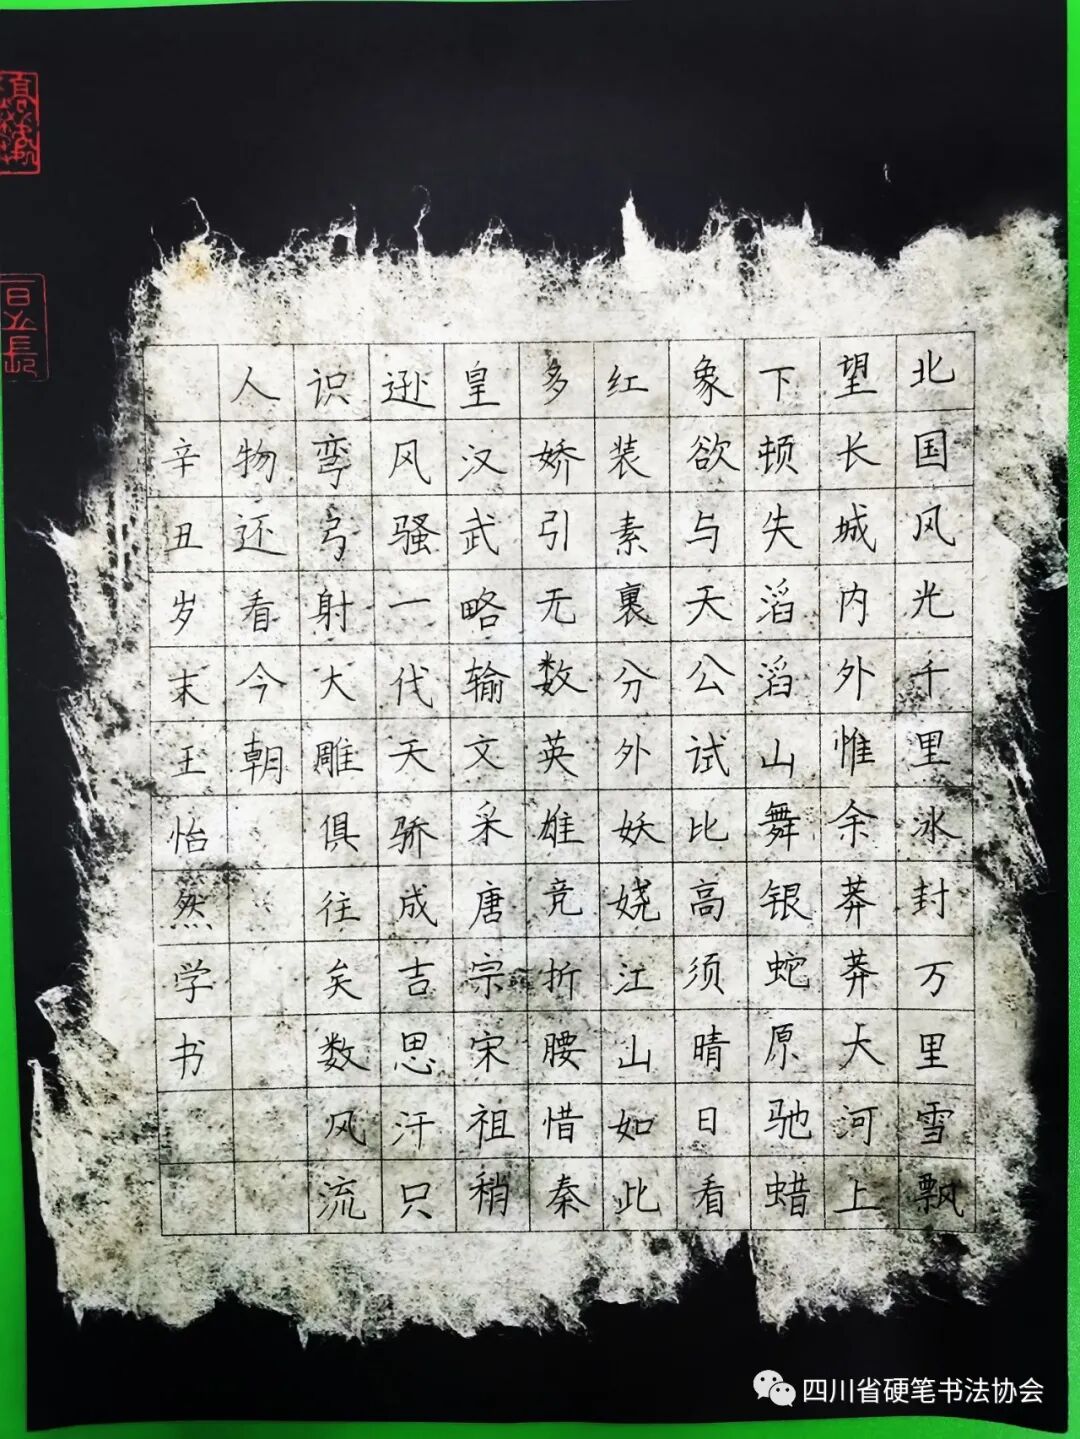 北国风光千里冰封万里雪飘
望长城内外惟余莽莽大河上
下顿失滔滔山舞银蛇原驰蜡
象欲与天公试比高须晴日看
红装素裹分外妖娆江山如此
多娇引无数英雄竞折腰惜秦
皇汉武略输文采唐宗宋祖稍
逊风骚一代天骄成吉思汗只
识弯弓射大雕俱往矣数风流
人物还看今朝
辛丑岁末王怡然学书
四川省硬笔书法协会